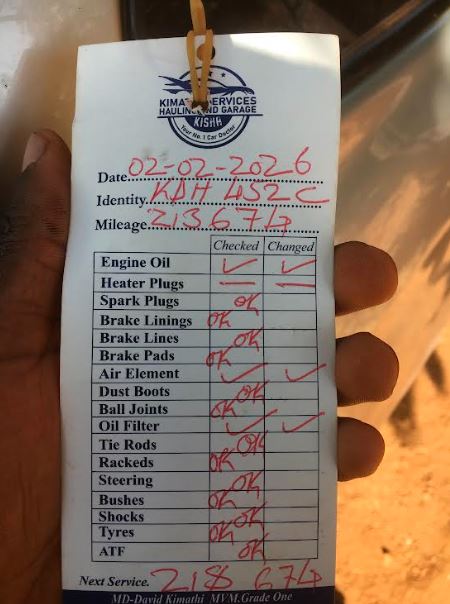 KIMATHI SERVICES
HAULING AND GARAGE
KISHH
Your No.1 Car Doctor
Date 02-02-2026
Identity KDH 452C
Mileage 213674
Checked Changed
Engine Oil ✓ ✓
Heater Plugs — —
Spark Plugs OK
Brake Linings OK
Brake Lines OK
Brake Pads OK
Air Element ✓ ✓
Dust Boots OK
Ball Joints OK
Oil Filter ✓ ✓
Tie Rods OK
Rackeds OK
Steering OK
Bushes OK
Shocks OK
Tyres OK
ATF OK
Next Service. 218 674
MD-David Kimathi MVM.Grade One